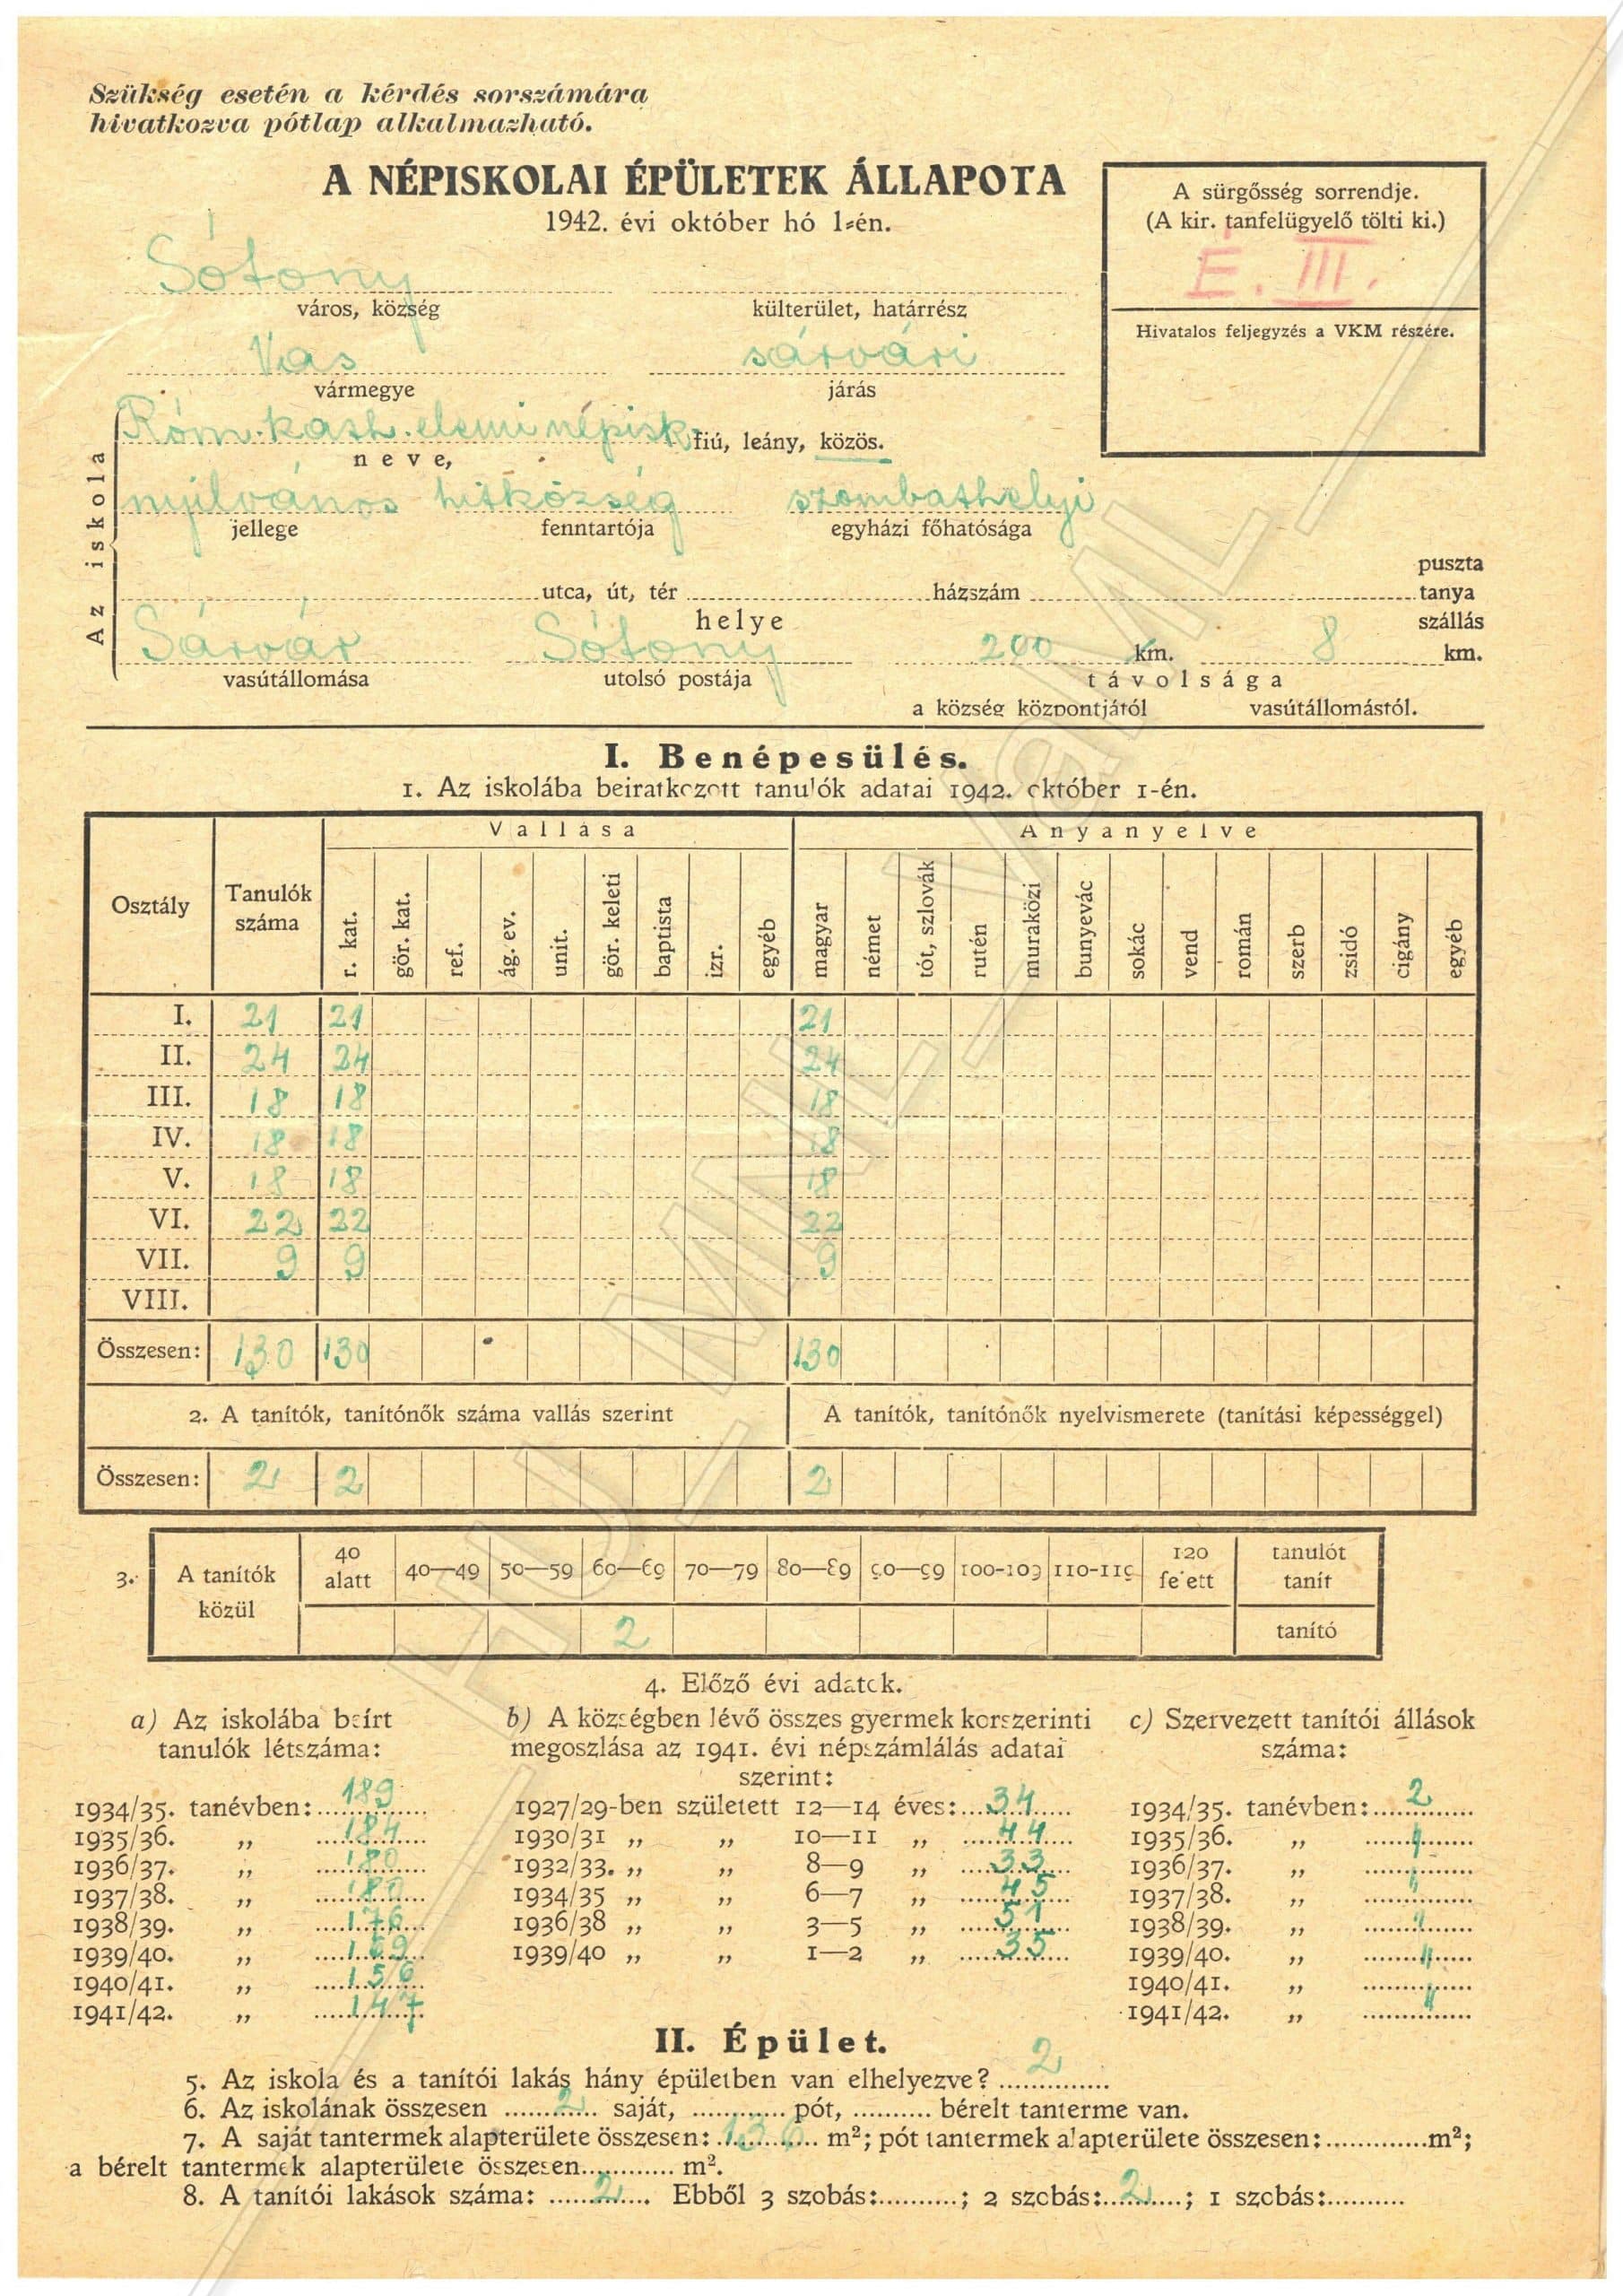 Szükség esetén a kérdés sorszámára
hivatkozva pótlap alkalmazható.
A NÉPISKOLAI ÉPÜLETEK ÁLLAPOTA
1942. évi október hó 1-én.
A sürgősség sorrendje.
(A kir. tanfelügyelő tölti ki.)
É. III.
Hivatalos feljegyzés a VKM részére.
Sótony
város, község külterület, határrész
Vas sárvári
vármegye járás
Az iskola
Róm. kath. elemi népisk. fiú, leány, közös.
neve,
nyilvános hitközség szombathelyi
jellege fenntartója egyházi főhatósága
puszta
utca, út, tér házszám tanya
helye szállás
Sárvár Sótony 200 km. 8 km.
vasútállomása utolsó postája távolsága
a község központjától vasútállomástól.
I. Benépesülés.
1. Az iskolába beiratkozott tanulók adatai 1942. október 1-én.
Osztály Tanulók száma Vallása Anyanyelve
r. kat. gör. kat. ref. ág. ev. unit. gör. keleti baptista izr. egyéb magyar német tót, szlovák rutén muraközi bunyevác sokác vend román szerb zsidó cigány egyéb
I. 21 21 21
II. 24 24 24
III. 18 18 18
IV. 18 18 18
V. 18 18 18
VI. 22 22 22
VII. 9 9 9
VIII.
Összesen: 130 130 130
2. A tanítók, tanítónők száma vallás szerint A tanítók, tanítónők nyelvismerete (tanítási képességgel)
Összesen: 2 2 2
3. A tanítók közül 40 alatt 40—49 50—59 60—69 70—79 80—89 90—99 100-109 110-119 120 felett tanulót tanít
2 tanító
4. Előző évi adatok.
a) Az iskolába beírt b) A községben lévő összes gyermek korszerinti c) Szervezett tanítói állások
tanulók létszáma: megoszlása az 1941. évi népszámlálás adatai száma:
szerint:
1934/35. tanévben: 189 1927/29-ben született 12—14 éves: 34 1934/35. tanévben: 2
1935/36. „ 184 1930/31 „ „ 10—11 „ 44 1935/36. „ „
1936/37. „ 180 1932/33. „ „ 8—9 „ 33 1936/37. „ „
1937/38. „ 180 1934/35 „ „ 6—7 „ 45 1937/38. „ „
1938/39. „ 176 1936/38 „ „ 3—5 „ 51 1938/39. „ „
1939/40. „ 169 1939/40 „ „ 1—2 „ 35 1939/40. „ „
1940/41. „ 156 1940/41. „ „
1941/42. „ 147 1941/42. „ „
II. Épület.
5. Az iskola és a tanítói lakás hány épületben van elhelyezve? 2
6. Az iskolának összesen 2 saját, ............ pót, .......... bérelt tanterme van.
7. A saját tantermek alapterülete összesen: 136 m²; pót tantermek alapterülete összesen: ............. m²;
a bérelt tantermek alapterülete összesen............ m².
8. A tanítói lakások száma: 2. Ebből 3 szobás:..........; 2 szobás: 2; 1 szobás:..........
HU_MNL_VaML